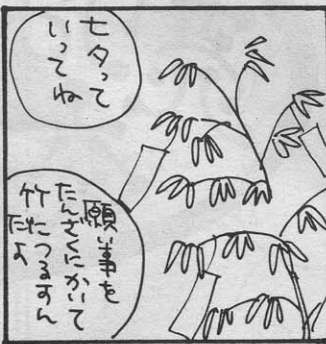 七夕って
いってね
願い事を
たんざくにかいて
竹につるすん
だよ